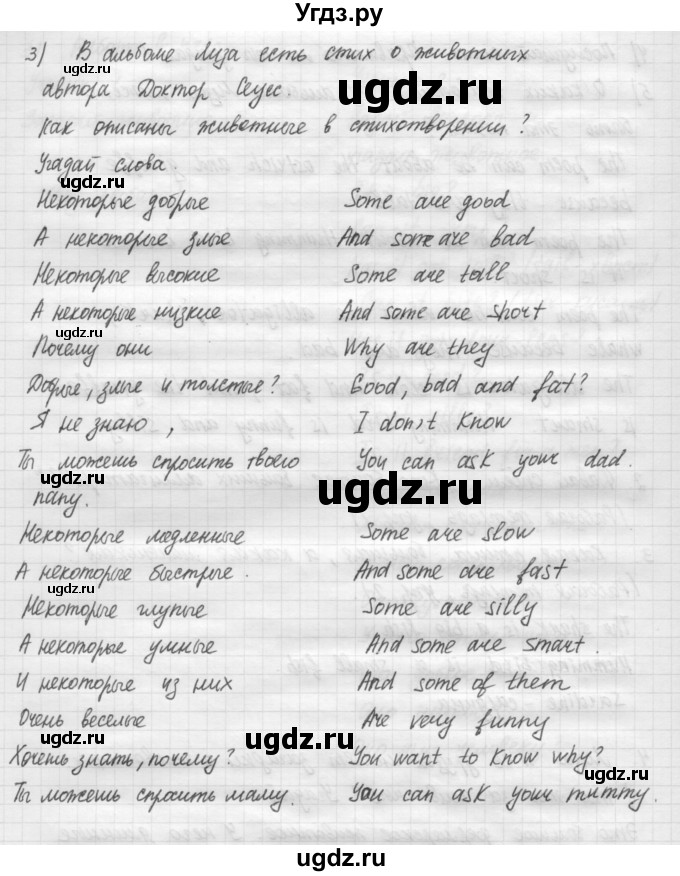 Угдз.ру
3) В альбоме Лиза есть стих о животных
автора Доктор Сеуес.
ugdz.ru
Как описаны животные в стихотворении?
Угадай слова
ugdz.ru
Некоторые добрые Some are good
А некоторые злые And some are bad
Некоторые высокие Some are tall
А некоторые низкие And some are short
ugdz.ru
Почему они Why are they
Добрые, злые и толстые? Good, bad and fat?
Я не знаю, I don't know
Ты можешь спросить твоего You can ask your dad.
папу.
ugdz.ru
ugdz.ru
Некоторые медленные Some are slow
А некоторые быстрые. And some are fast
Некоторые глупые Some are silly
ugdz.ru
А некоторые умные And some are smart.
И некоторые из них And some of them
Очень веселые Are very funny
ugdz.ru
ugdz.ru
Хочешь знать, почему? You want to know why?
ugdz.ru
Ты можешь спросить маму. You can ask your mummy.
ugdz.ru
ugdz.ru